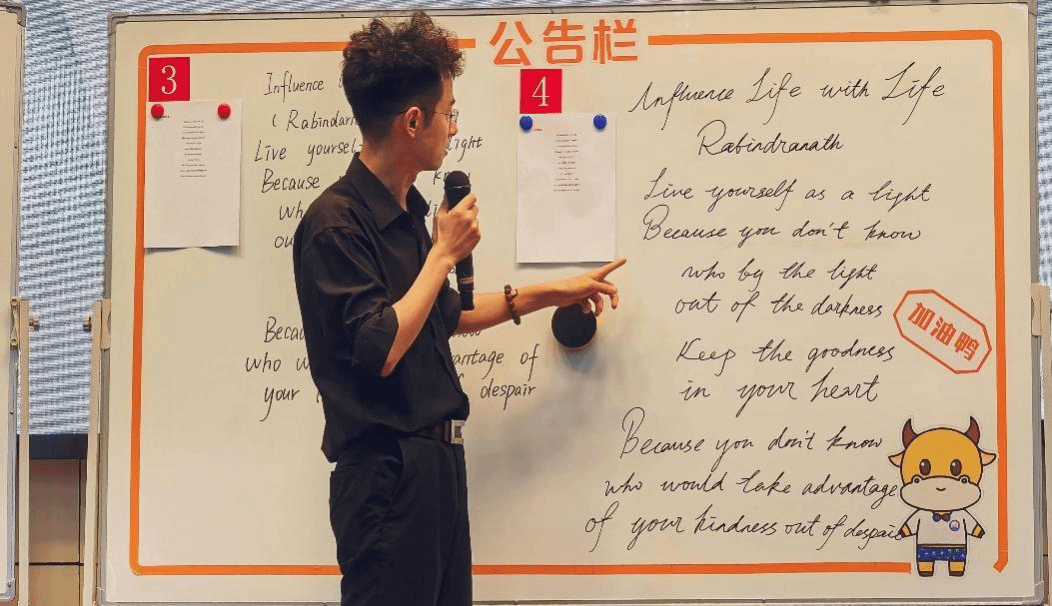 公告栏
3
Influence
(Rabindar
Live yoursel light
Because kn
wh
ou
Becau
who w antage of
your despair
4
Influence Life with Life
Rabindranath
Live yourself as a light
Because you don't know
who by the light
out of the darkness
Keep the goodness
in your heart
Because you don't know
who would take advantage
of your kindness out of despair
加油鸭